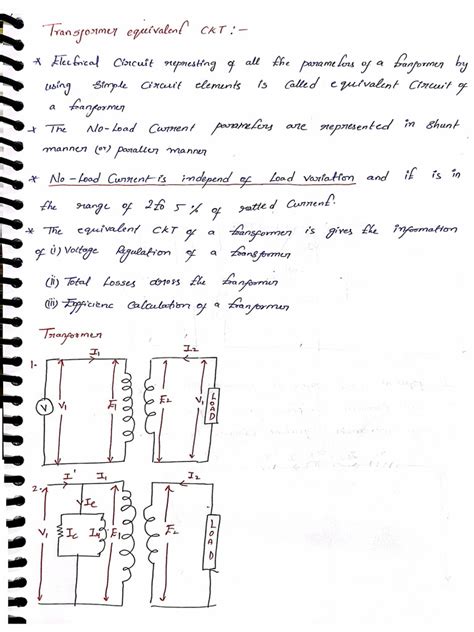 Transformer equivalent CKT :-
* Electrical Circuit represting of all the parameters of a tranformer by
using Simple Circuit elements is Called equivalent Circuit of
a tranformer
* The No-Load Current parameters are represented in Shunt
manner (or) parallen manner
* No-Load Current is independ of Load variation and it is in
the range of 2 to 5 % of ratted Current.
* The equivalent CKT of a transformer is gives the information
of (i) Voltage Regulation of a transformer
(ii) Total Losses across the tranformer
(iii) Efficienc Calculation of a tranformer
Tranformer
1. I1 I2
V V1 E1 E2 V1 LOAD
2. I' I1 I2
Ic
V1 Ic E1 E2 LOAD